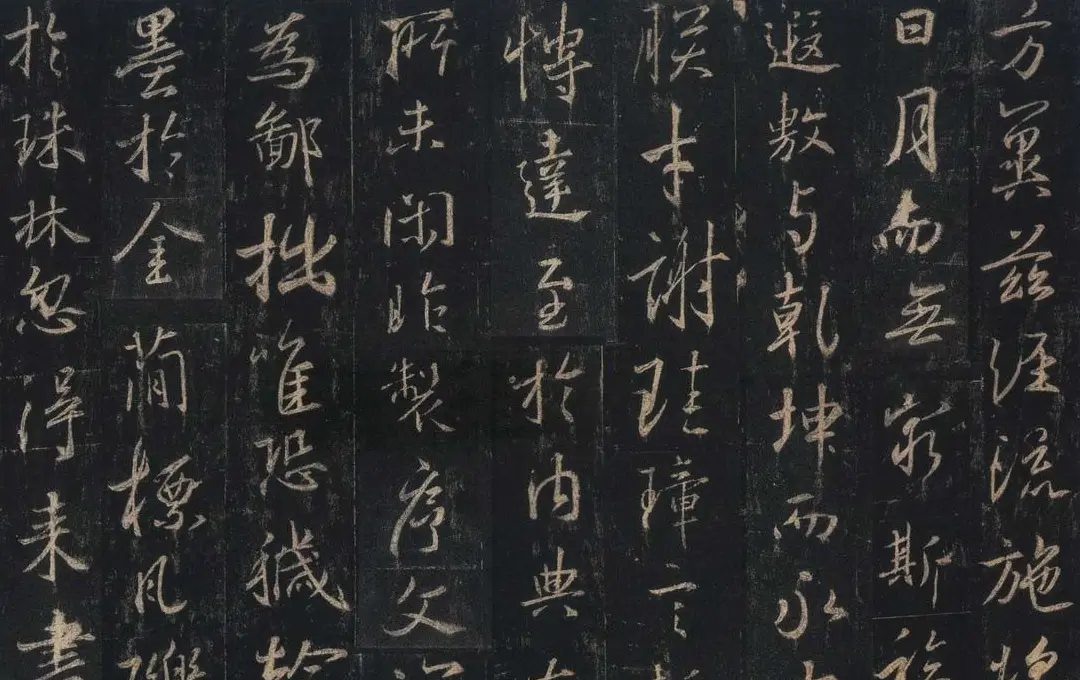 方冀茲經流施將
日月而無窮斯福
遐敷与乾坤而永
朕才謝珪璋言
慱達至於內典
所未閑昨製序文
為鄙拙唯恐穢翰
墨於金簡標瓦礫
於珠林忽得来書